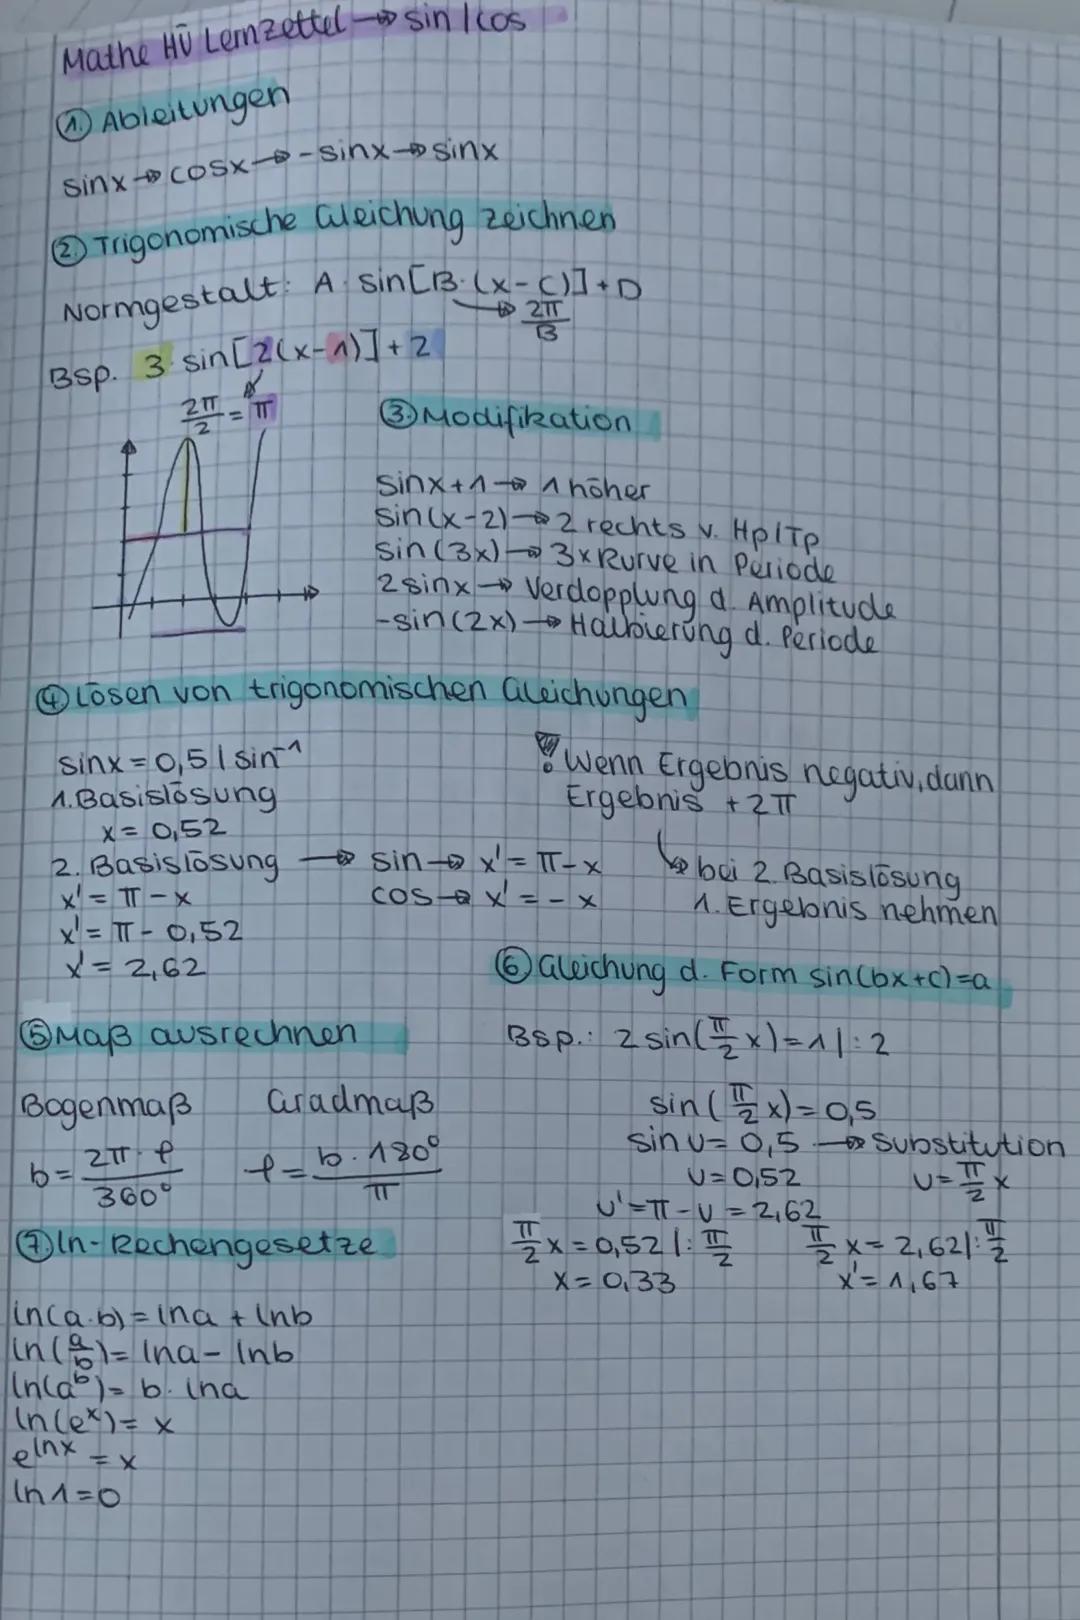 Mathe HÜ Lernzettel → sin/cos
① Ableitungen
sinx → cosx → -sinx → sinx
② Trigonomische Gleichung zeichnen
Normgestalt: A · sin[B·(x-C)]+D
→ 2π/B
Bsp. 3 · sin[2(x-1)]+2
2π/2 = π
③ Modifikation
sinx+1 → 1 höher
sin(x-2) → 2 rechts v. Hp/Tp
sin(3x) → 3x Kurve in Periode
2sinx → Verdopplung d. Amplitude
-sin(2x) → Halbierung d. Periode
④ Lösen von trigonomischen Gleichungen
sinx = 0,5 | sin⁻¹
1. Basislösung
x = 0,52
2. Basislösung → sin → x' = π-x
cos → x' = -x
x' = π - x
x' = π - 0,52
x' = 2,62
! Wenn Ergebnis negativ, dann
Ergebnis +2π
↳ bei 2. Basislösung
1. Ergebnis nehmen
⑤ Maß ausrechnen
Bogenmaß Gradmaß
b = 2π · φ/360° φ = b · 180°/π
⑥ Gleichung d. Form sin(bx+c)=a
Bsp.: 2 sin(π/2 x) = 1 | : 2
sin(π/2 x) = 0,5
sin u = 0,5 → Substitution
u = 0,52 u = π/2 x
u' = π - u = 2,62
π/2 x = 0,52 | : π/2 π/2 x = 2,62 | : π/2
x = 0,33 x' = 1,67
⑦ ln-Rechengesetze
ln(a·b) = lna + lnb
ln(a/b) = lna - lnb
ln(aᵇ) = b · lna
ln(eˣ) = x
e^lnx = x
ln1 = 0